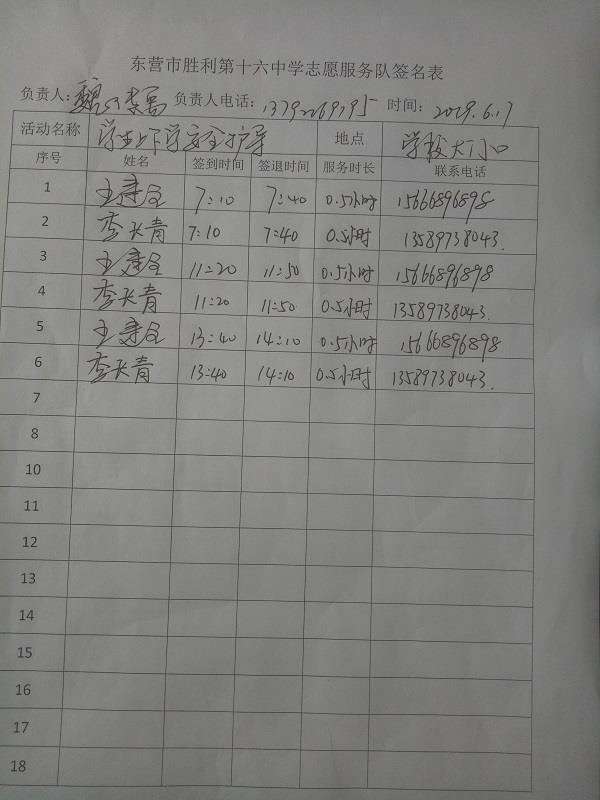 东营市胜利第十六中学志愿服务队签名表
负责人: 负责人电话: 13792269795 时间: 2019.6.17
活动名称 学生上下学安全护导 地点 学校大门口
序号 姓名 签到时间 签退时间 服务时长 联系电话
1 王建全 7:10 7:40 0.5小时 15666896898
2 李长青 7:10 7:40 0.5小时 13589738043.
3 王建全 11:20 11:50 0.5小时 15666896898
4 李长青 11:20 11:50 0.5小时 13589738043.
5 王建全 13:40 14:10 0.5小时 15666896898
6 李长青 13:40 14:10 0.5小时 13589738043.
7
8
9
10
11
12
13
14
15
16
17
18